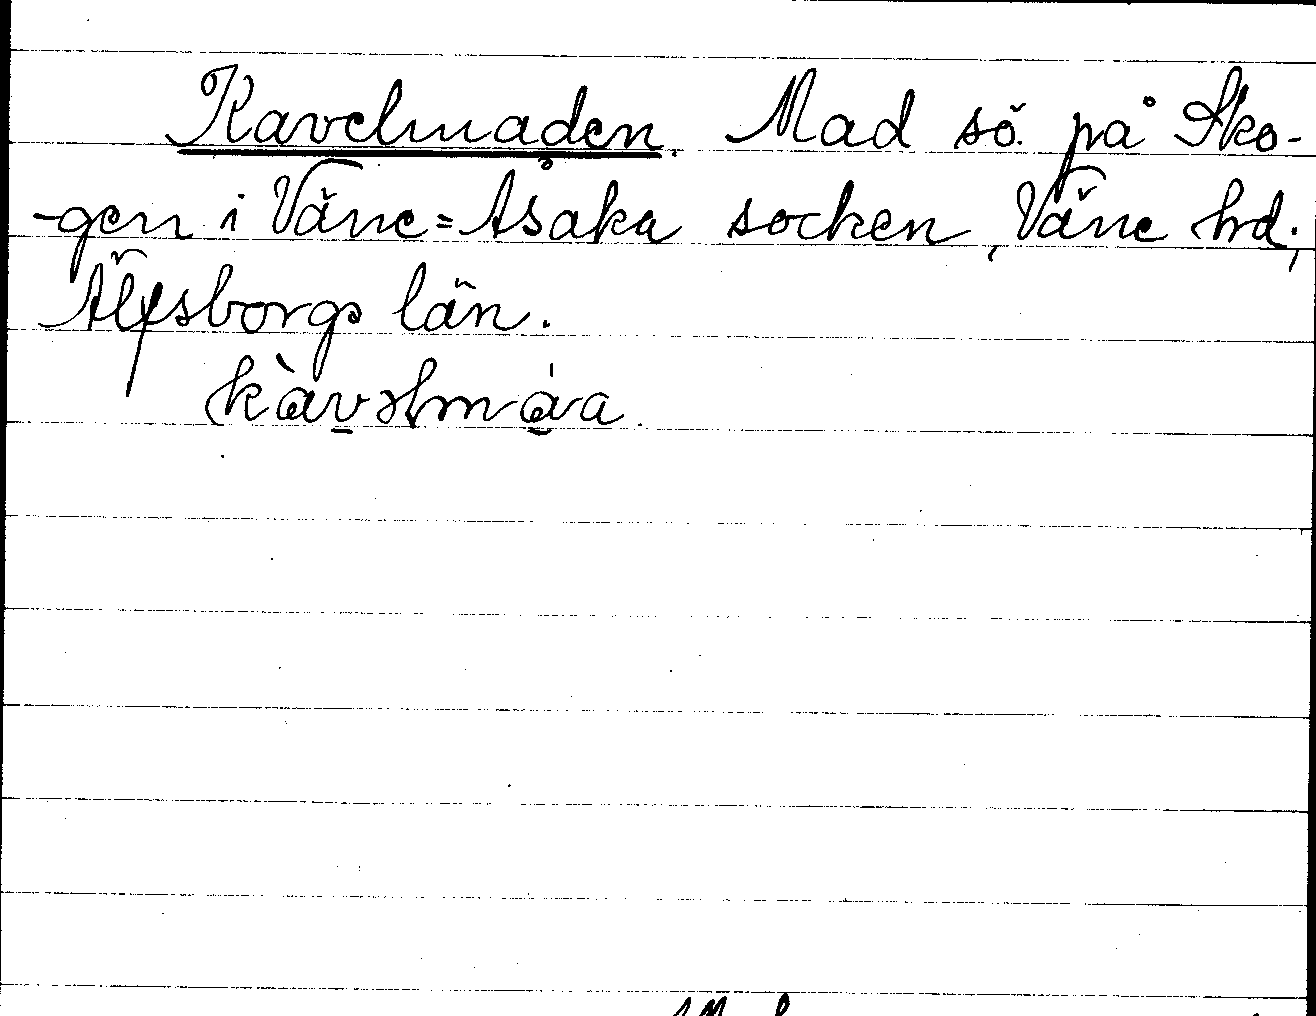 Kavelmaden. Mad sö. på Sko-
-gen i Väne=Åsaka socken, Väne hd.,
Älfsborgs län.